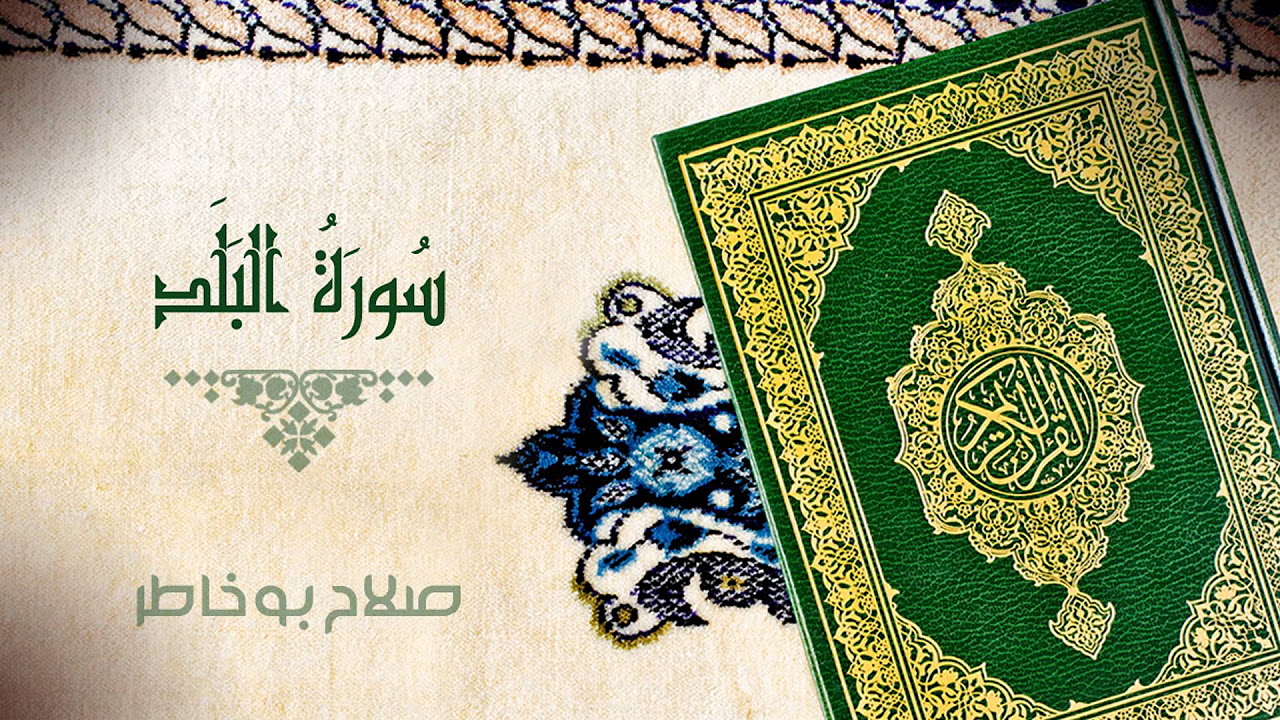 سُورَةُ الْبَلَد
صلاح بو خاطر
القرآن الكريم